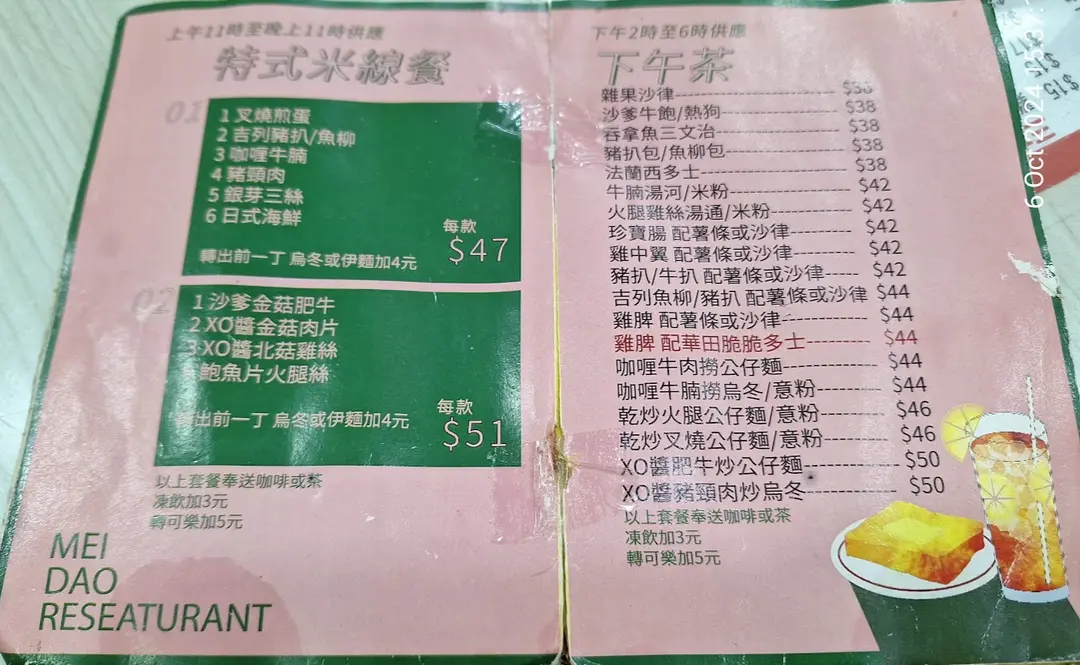 上午11時至晚上11時供應
特式米線餐
01
1 叉燒煎蛋
2 吉列豬扒/魚柳
3 咖喱牛腩
4 豬頸肉
5 銀芽三絲
6 日式海鮮
每款
$47
轉出前一丁 烏冬或伊麵加4元
02
1 沙爹金菇肥牛
2 XO醬金菇肉片
3 XO醬北菇雞絲
鮑魚片火腿絲
每款
$51
出前一丁 烏冬或伊麵加4元
以上套餐奉送咖啡或茶
凍飲加3元
轉可樂加5元
MEI
DAO
RESEATURANT
下午2時至6時供應
下午茶
雜果沙律---------------------- $38
沙爹牛飽/熱狗---------------- $38
吞拿魚三文治---------------- $38
豬扒包/魚柳包---------------- $38
法蘭西多士------------------- $38
牛腩湯河/米粉---------------- $42
火腿雞絲湯通/米粉----------- $42
珍寶腸 配薯條或沙律--------- $42
雞中翼 配薯條或沙律--------- $42
豬扒/牛扒 配薯條或沙律----- $42
吉列魚柳/豬扒 配薯條或沙律 $44
雞脾 配薯條或沙律------------ $44
雞脾 配華田脆脆多士--------- $44
咖喱牛肉撈公仔麵------------ $44
咖喱牛腩撈烏冬/意粉--------- $44
乾炒火腿公仔麵/意粉--------- $46
乾炒叉燒公仔麵/意粉--------- $46
XO醬肥牛炒公仔麵------------ $50
XO醬豬頸肉炒烏冬------------ $50
以上套餐奉送咖啡或茶
凍飲加3元
轉可樂加5元
$15
$15